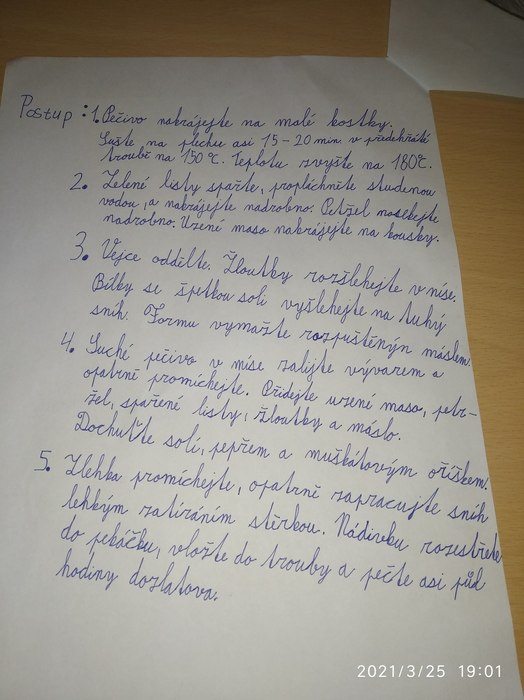 Postup: 1. Pečivo nakrájejte na malé kostky.
Sušte na plechu asi 15-20 min. v předehřáté
troubě na 150°C. Teplotu zvyšte na 180°C.
2. Zelené listy spařte, propláchněte studenou
vodou, a nakrájejte nadrobno. Petržel nasekejte
nadrobno. Uzené maso nakrájejte na kousky.
3. Vejce oddělte. Žloutky rozšlehejte v míse.
Bílky se špetkou soli vyšlehejte na tuhý
sníh. Formu vymažte rozpuštěným máslem.
4. Suché pečivo v míse zalijte vývarem a
opatrně promíchejte. Přidejte uzené maso, petr-
žel, spařené listy, žloutky a máslo.
Dochuťte solí, pepřem a muškátovým oříškem.
5. Zlehka promíchejte, opatrně zapracujte sníh
lehkým zatíráním stěrkou. Nádivku rozestřete
do pekáčku, vložte do trouby a pečte asi půl
hodiny dozlatova.
2021/3/25 19:01